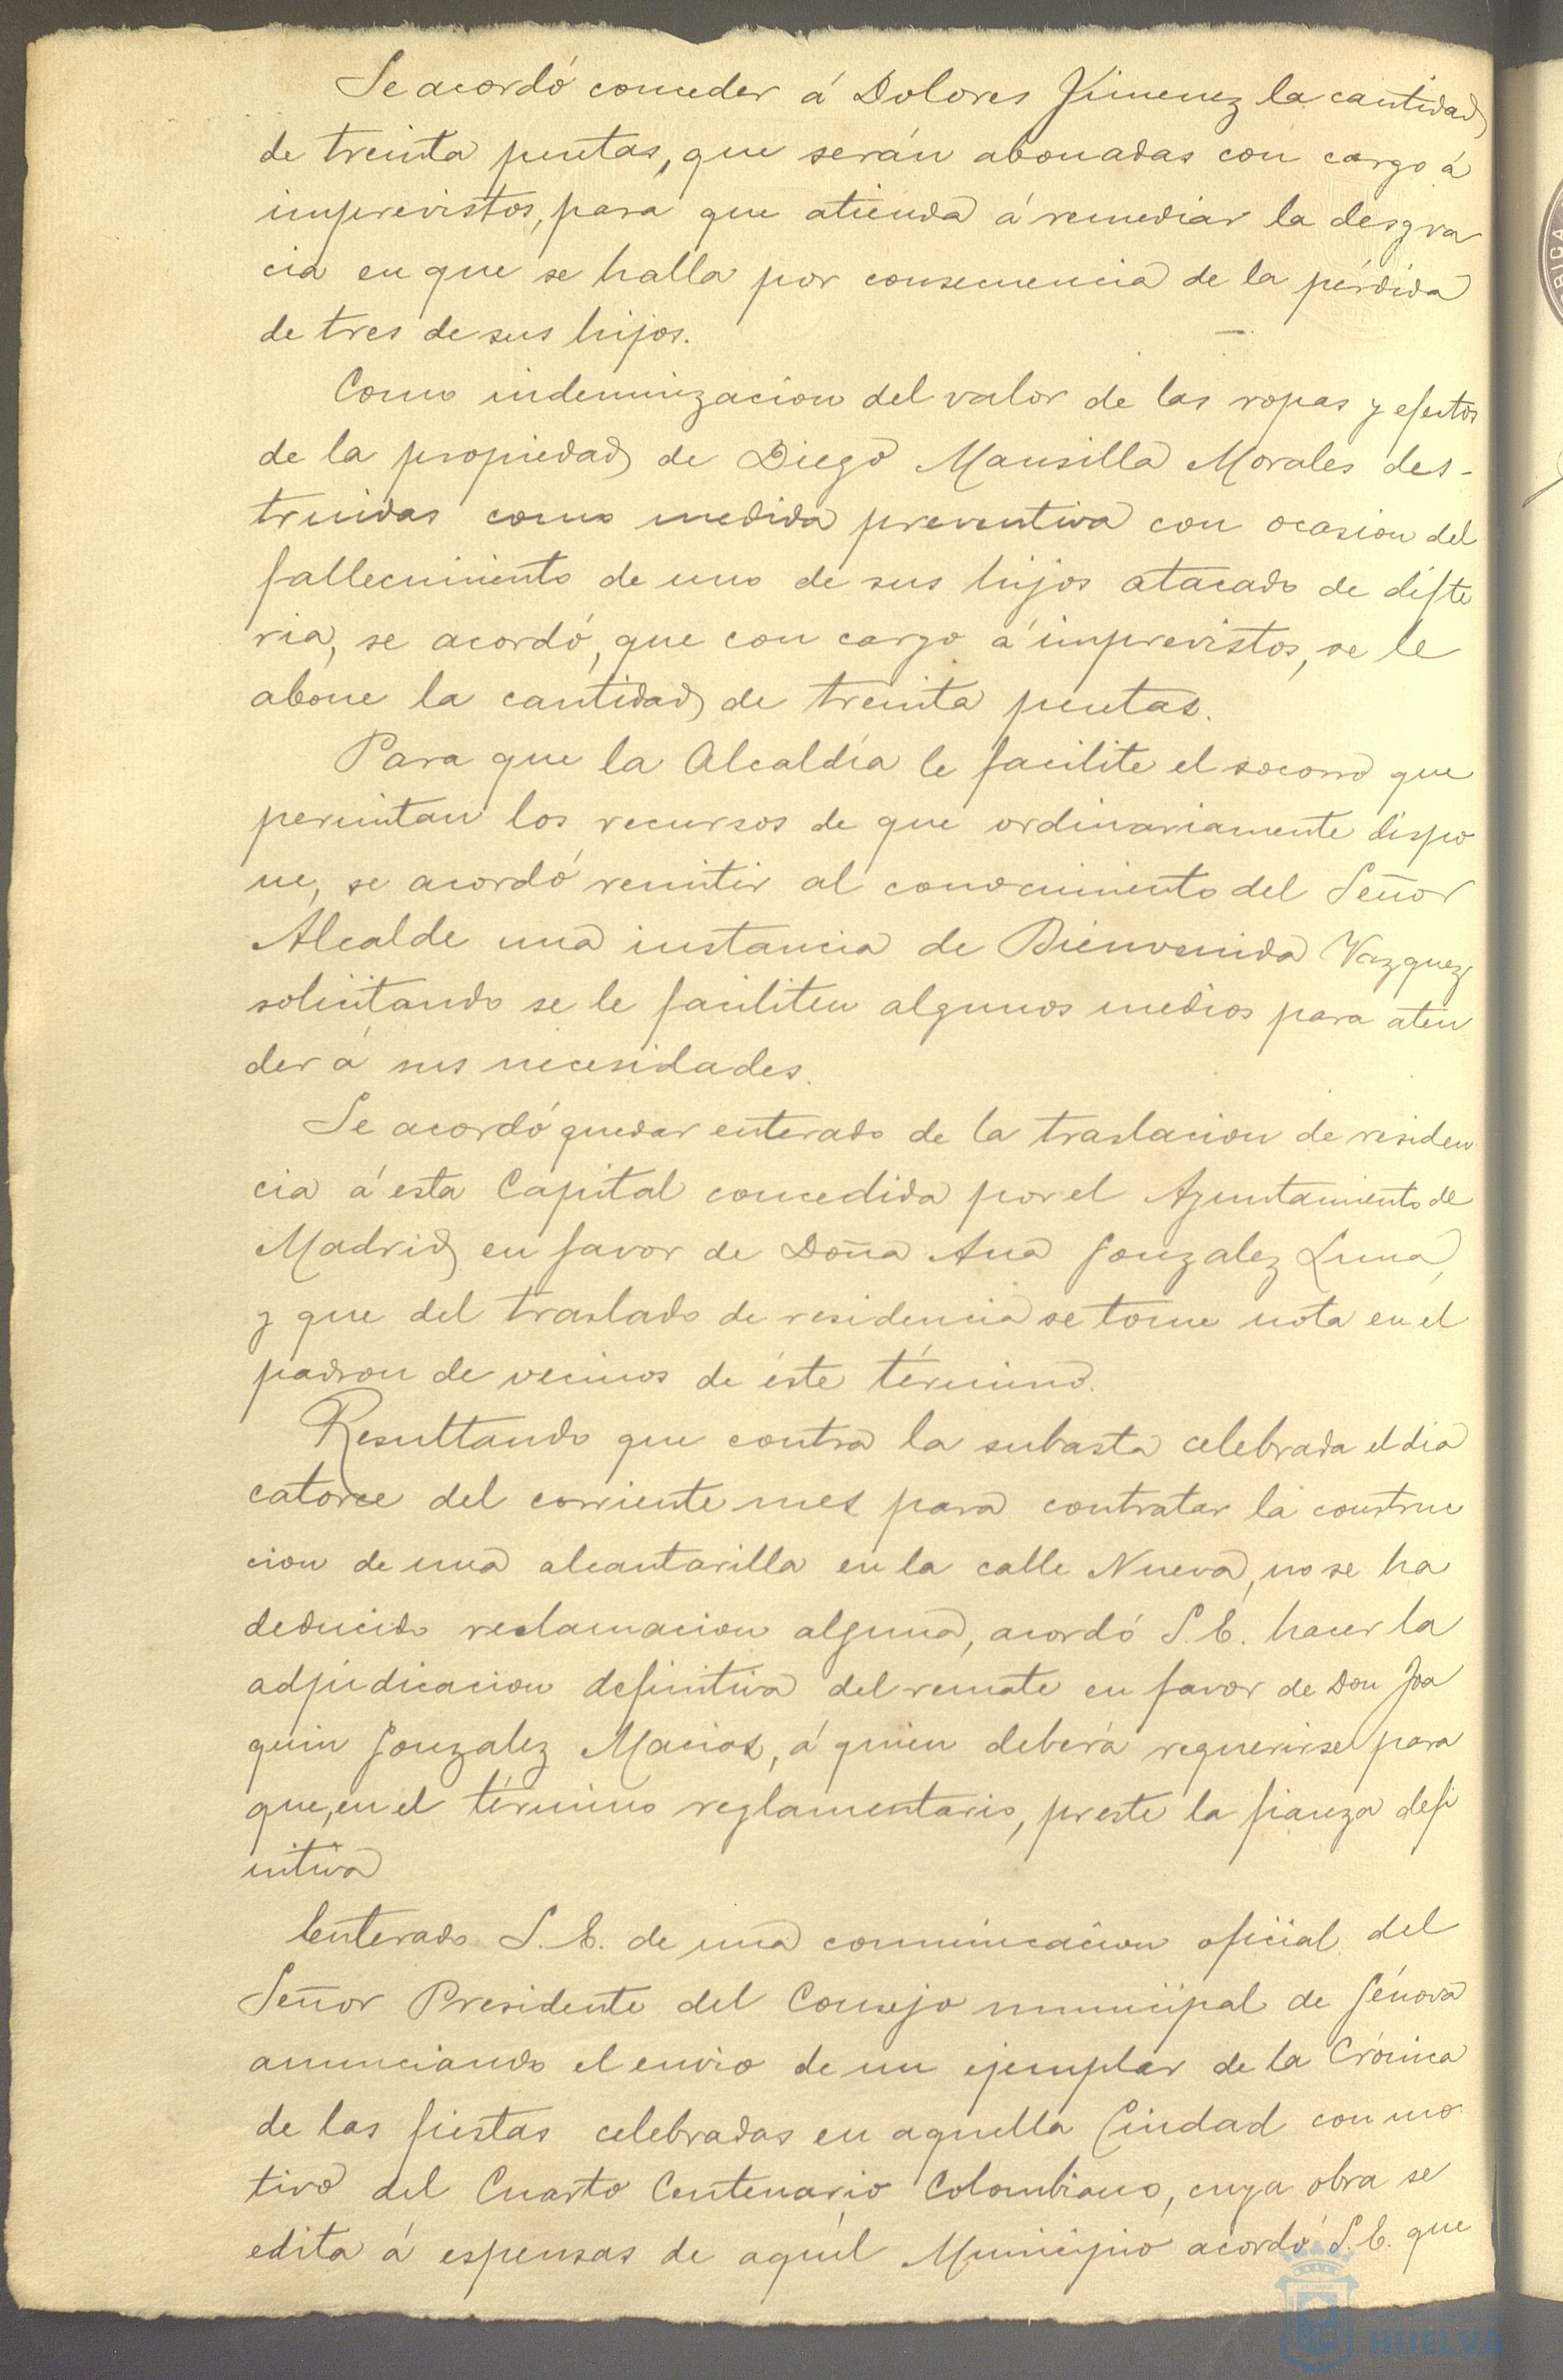 Se acordó conceder á Dolores Jimenez la cantidad
de treinta pesetas, que serán abonadas con cargo á
imprevistos, para que atienda á remediar la desgra
cia en que se halla por consecuencia de la pérdida
de tres de sus hijos.
Como indemnizacion del valor de las ropas y efectos
de la propiedad de Diego Mansilla Morales des-
truidas como medida preventiva con ocasion del
fallecimiento de uno de sus hijos atacado de difte
ria, se acordó, que con cargo á imprevistos, se le
abone la cantidad de treinta pesetas.
Para que la Alcaldía le facilite el socorro que
permitan los recursos de que ordinariamente dispo
ne, se acordó remitir al conocimiento del Señor
Alcalde una instancia de Bienvenida Vazquez
solicitando se le faciliten algunos medios para aten
der á sus necesidades.
Se acordó quedar enterado de la traslacion de residen
cia á esta Capital concedida por el Ayuntamiento de
Madrid en favor de Doña Ana Gonzalez Luna,
y que del traslado de residencia se tome nota en el
padron de vecinos de éste término.
Resultando que contra la subasta celebrada el dia
catorce del corriente mes para contratar la construc
cion de una alcantarilla en la calle Nueva, no se ha
deducido reclamacion alguna, acordó S. E. hacer la
adjudicacion definitiva del remate en favor de Don Joa
quin Gonzalez Macias, á quien deberá requerirse para
que, en el término reglamentario, preste la fianza defi
nitiva
Enterado S. E. de una comunicacion oficial del
Señor Presidente del Consejo municipal de Génova
anunciando el envio de un ejemplar de la Crónica
de las fiestas celebradas en aquella Ciudad con mo
tivo del Cuarto Centenario Colombiano, cuya obra se
edita á espensas de aquél Municipio acordó S. E. que
HUELVA